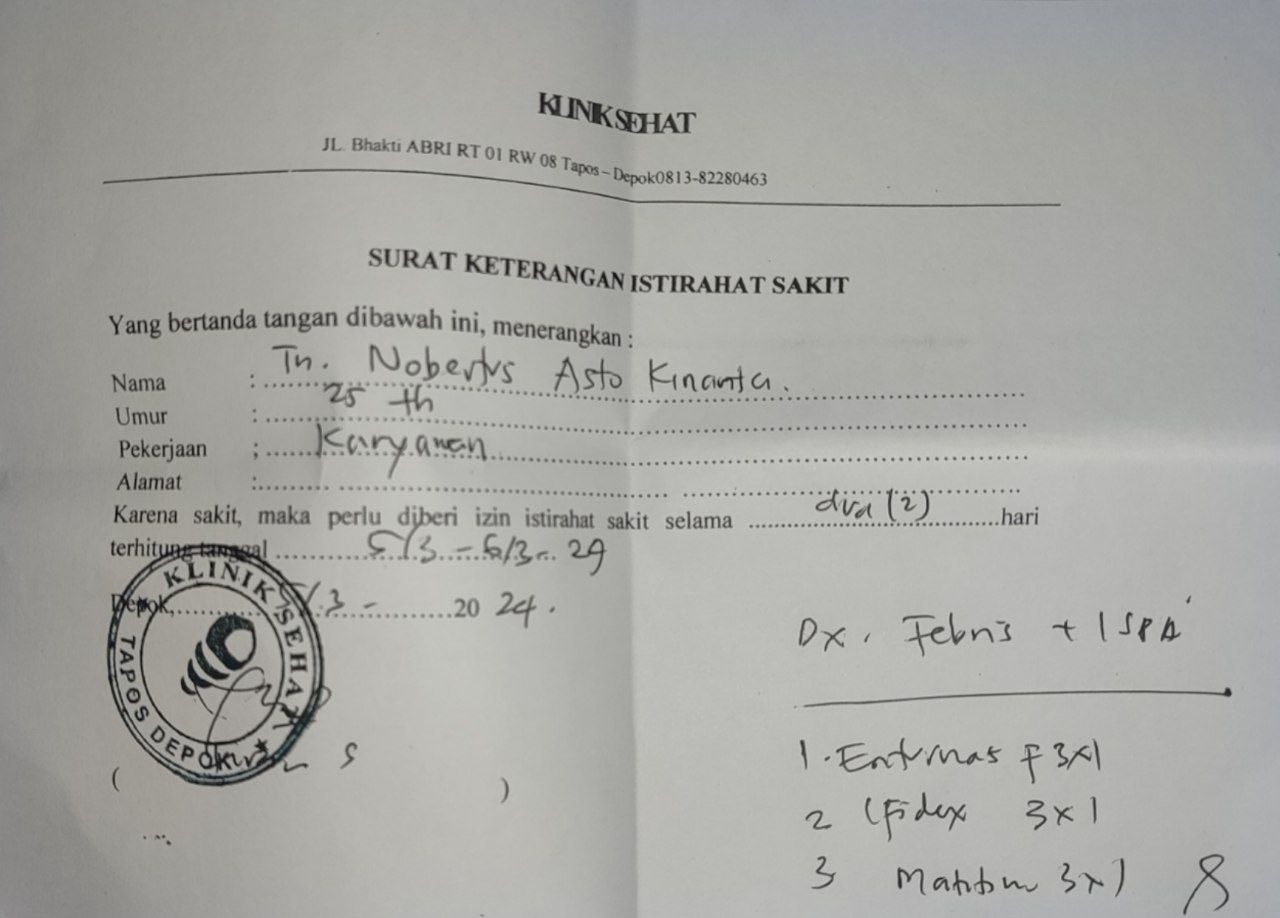 KLINIK SEHAT
JL. Bhakti ABRI RT 01 RW 08 Tapos – Depok0813-82280463
SURAT KETERANGAN ISTIRAHAT SAKIT
Yang bertanda tangan dibawah ini, menerangkan :
Nama : Tn. Nobertus Asto Kinanta.
Umur : 25 th
Pekerjaan ; Karyawan
Alamat :
Karena sakit, maka perlu diberi izin istirahat sakit selama dua (2) hari
terhitung tanggal 5/3 - 6/3 - 24
Depok, 5/3 - 2024.
KLINIK SEHAT
TAPOS DEPOK
( )
Dx. Febris + ISPA
1. F 3x1
2 3x1
3 3x1